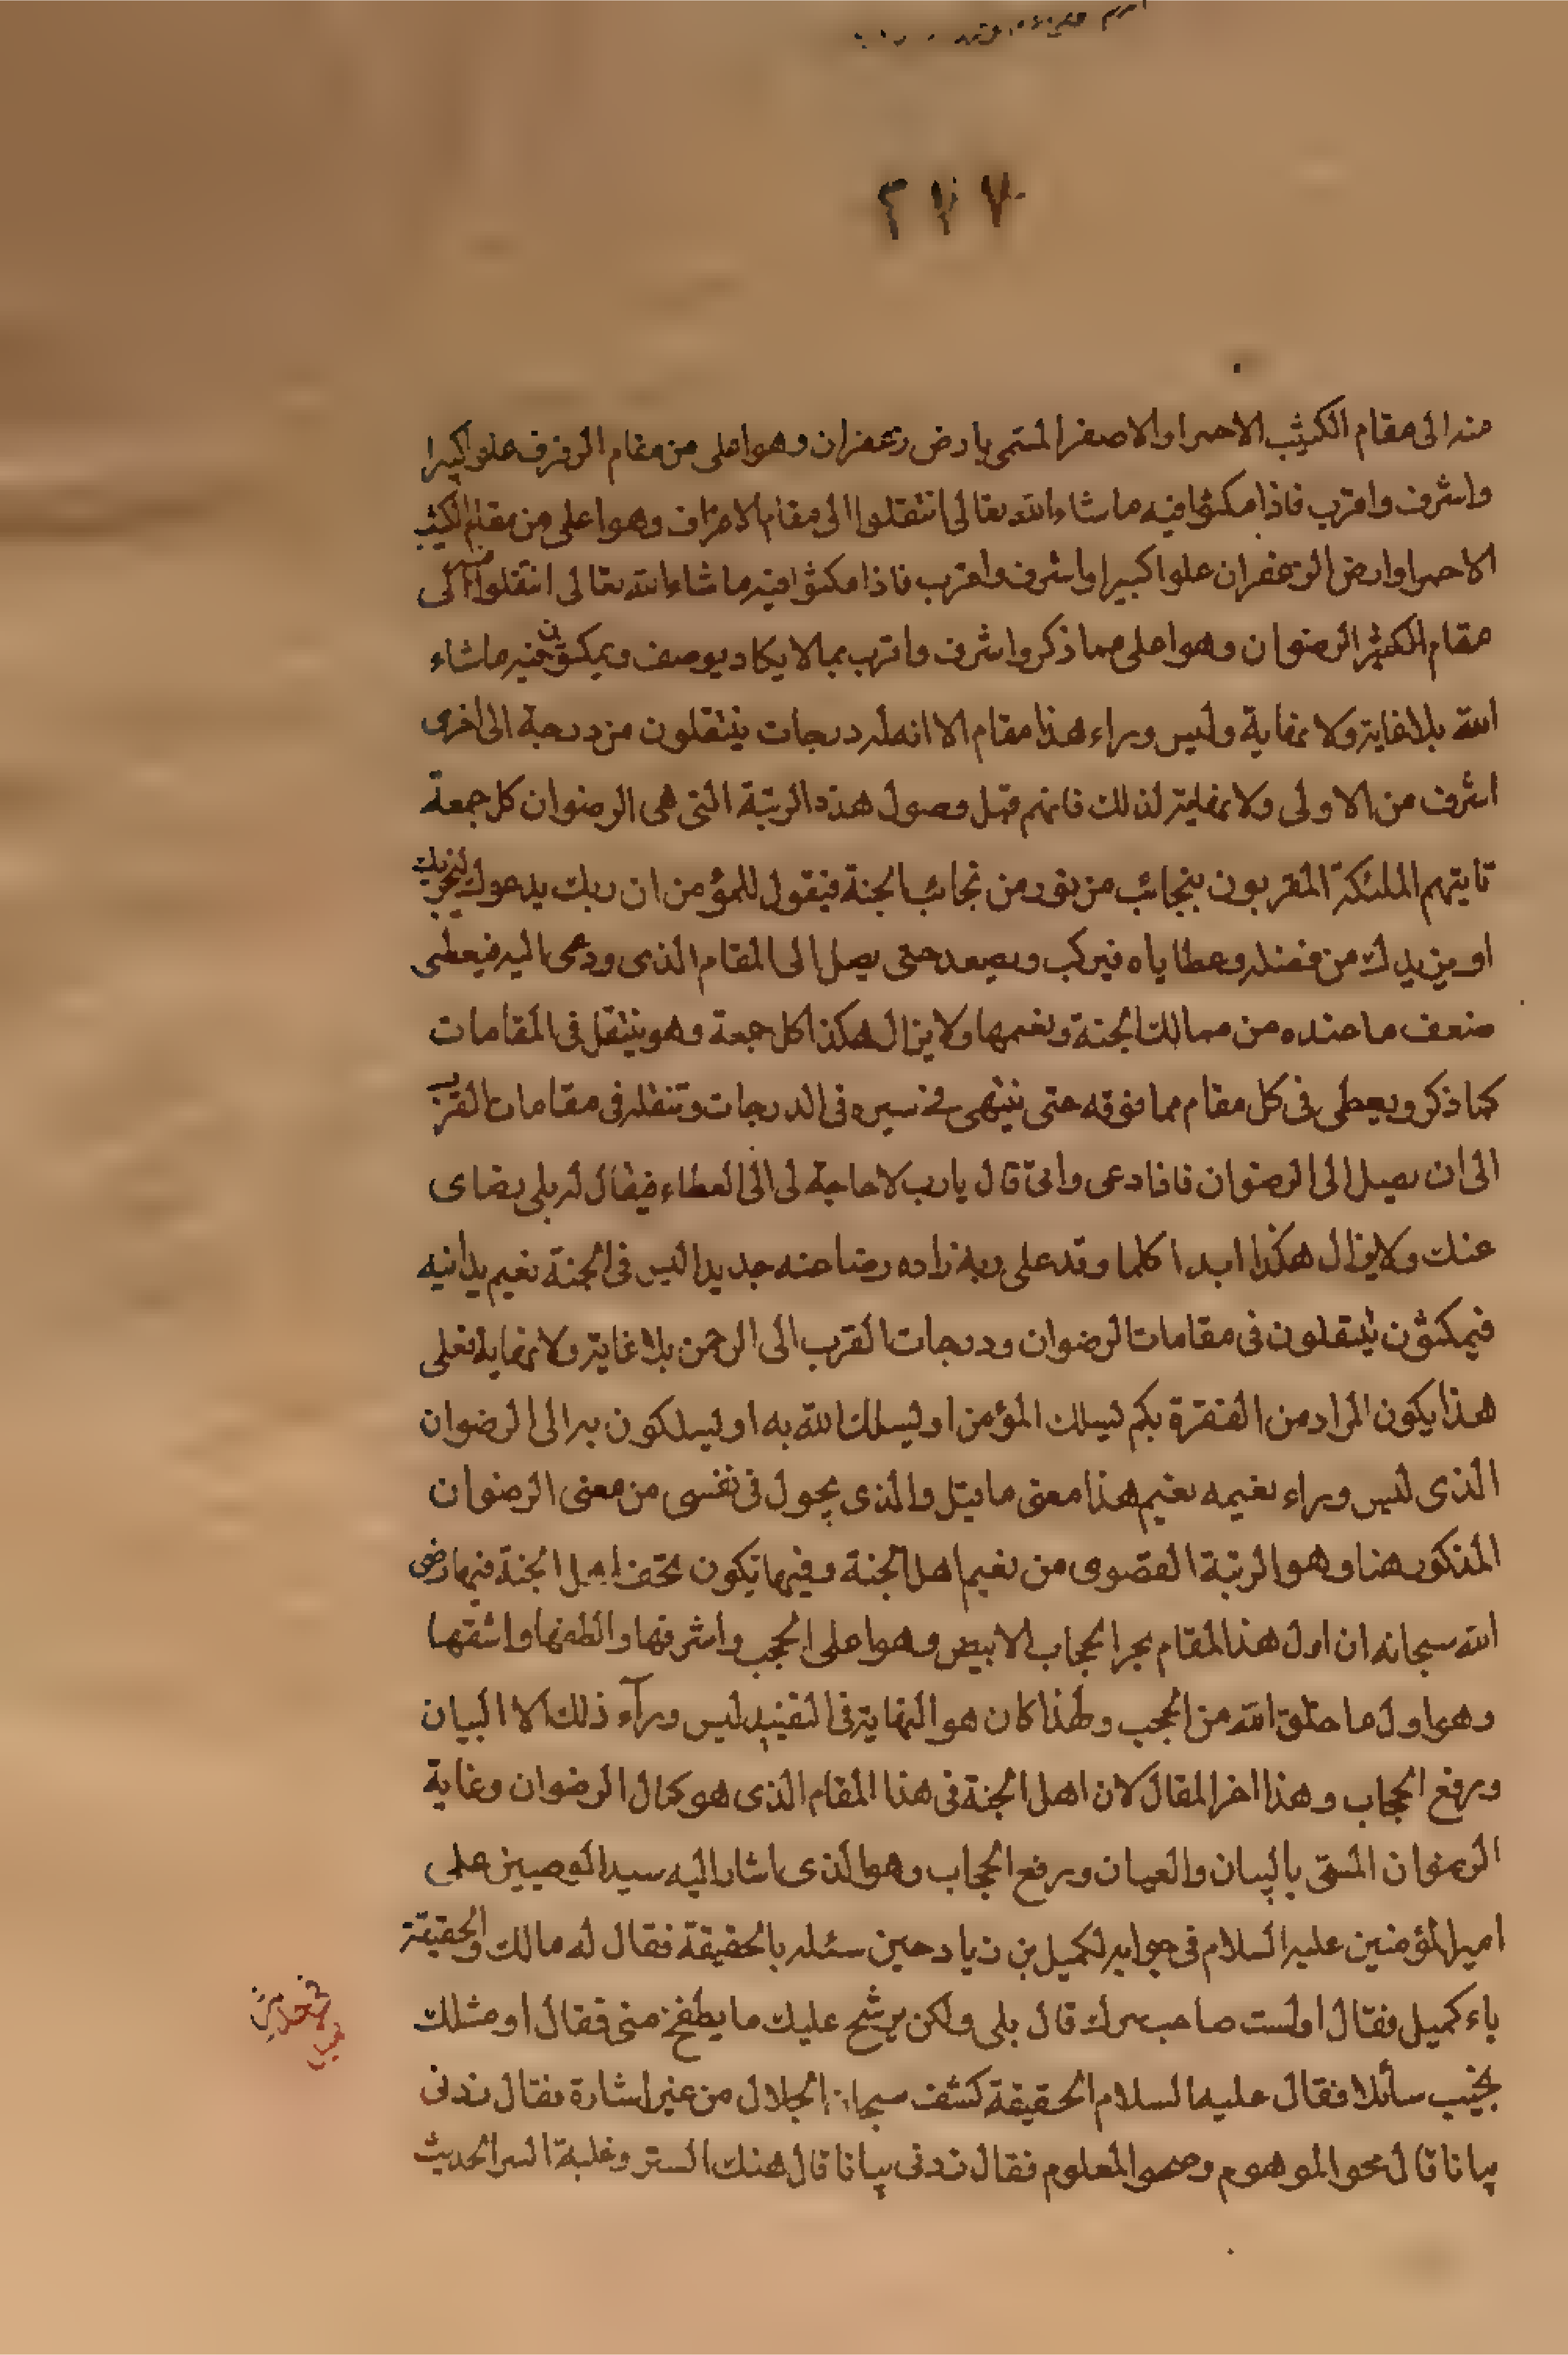 ٢١٧
منه الى مقام الكثيب الاحمر او الاصفر المسمى بارض زعفران وهو اعلى من مقام الرفرف علوا كبيرا
واشرف واقرب فاذا مكثوا فيه ما شاء الله تعالى انتقلوا الى مقام الاعراف وهو اعلى من مقام الكثيب
الاحمر وارض الزعفران علوا كبيرا واشرف واقرب فاذا مكثوا فيه ما شاء الله تعالى انتقلوا منه الى
مقام الرضوان وهو اعلى مما ذكر واشرف واقرب بما لا يكاد يوصف ويمكثون فيه ما شاء
الله بلا غاية ولا نهاية وليس وراء هذا مقام الا انه له درجات ينتقلون من درجة الى اخرى
اشرف من الاولى ولا نهاية لذلك فانهم قبل وصول هذه الرتبة التى هى الرضوان كل جمعة
تاتيهم الملئكة المقربون بنجائب من نور من نجائب الجنة فيقول للمؤمن ان ربك يدعوك
او يزيدك من فضله وعطاياه فيركب ويصعد حتى يصل الى المقام الذى ودعى اليه فيعطى
ضعف ما عنده من ممالك الجنة ونعيمها ولا يزال هكذا كل جمعة وهو ينتقل فى المقامات
كما ذكر ويعطى فى كل مقام مما فوقه حتى ينتهى فى سيره فى الدرجات وتنقله فى مقامات القرب
الى ان يصل الى الرضوان فاذا دعى واتى قال يا رب لا حاجة لى الى العطاء فيقال له بلى رضاى
عنك ولا يزال هكذا ابدا كلما وفد على ربه زاده رضا عنه جديدا ليس فى الجنة نعيم يدانيه
فيمكثون ينتقلون فى مقامات الرضوان ودرجات القرب الى الرحمن بلا غاية ولا نهاية فعلى
هذا يكون المراد من الفقرة بكم ليسلك المؤمن او ليسلك الله به او ليسلكون به الى الرضوان
الذى ليس وراء نعيمه نعيم هذا معنى ما قيل والذى يجول فى نفسى من معنى الرضوان
المذكور هنا وهو الرتبة القصوى من نعيم اهل الجنة وفيها تكون تحف اهل الجنة فيها رضى
الله سبحانه ان اول هذا المقام بحر الحجاب الابيض وهو اعلى الحجب واشرفها والطفها واشقها
وهو اول ما خلق الله من الحجب ولهذا كان هو النهاية فى التقييد ليس ورآء ذلك الا البيان
ورفع الحجاب وهذا اخر المقال لان اهل الجنة فى هذا المقام الذى هو كمال الرضوان وغاية
الرضوان المسمى بالبيان والعيان ورفع الحجاب وهو الذى اشار اليه سيد الوصيين على
امير المؤمنين عليه السلام فى جوابه لكميل بن زياد حين سئله بالحقيقة فقال له مالك والحقيقة
ياء كميل فقال اولست صاحب سرك قال بلى ولكن يرشح عليك ما يطفح منى فقال او مثلك
يخيب سائلا فقال عليه السلام الحقيقة كشف سبحات الجلال من غير اشارة فقال زدنى
بيانا قال محو الموهوم وصحو المعلوم فقال زدنى بيانا قال هتك الستر وغلبة السر الحديث